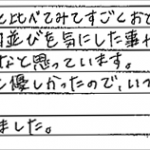 と比べてみてすごくおと
歯並びを気にした事や
なと思っています。
と優しかったので、いつ
ました。